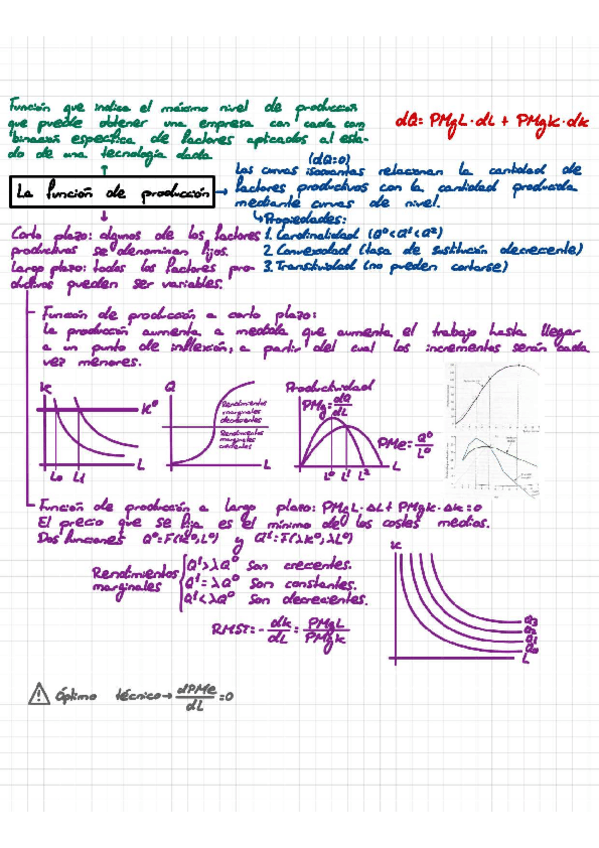 Función que indica el máximo nivel de producción
que puede obtener una empresa con cada com
binación específica de factores aplicados al esta-
do de una tecnología dada
dQ = PMgL · dL + PMgK · dk
(dQ=0)
Las curvas isocuantas relacionan la cantidad de
factores productivos con la cantidad producida
mediante curvas de nivel.
La función de producción
↳Propiedades:
1. Cardinalidad (Q⁰<Q¹<Q²)
2. Convexidad (tasa de sustitución decrecente)
3. Transitividad (no pueden cortarse)
Corto plazo: algunos de los factores
productivos se denominan fijos.
Largo plazo: todos los factores pro-
ductivos pueden ser variables.
Función de producción a corto plazo:
La producción aumenta a medida que aumenta el trabajo hasta llegar
a un punto de inflexión, a partir del cual los incrementos serán cada
vez menores.
K
K⁰
L₀ L₁ L
Q
Rendimientos
marginales
decrecientes
Rendimientos
marginales
crecientes
L
Productividad
PMg = dQ/dL
PMe = Q⁰/L⁰
L⁰ L¹ L² L
Función de producción a largo plazo: PMgL · ΔL + PMgK · Δk = 0
El precio que se fija es el mínimo de los costes medios.
Dos funciones Q⁰=F(K⁰,L⁰) y Q¹=F(λK⁰,λL⁰)
Rendimientos
marginales
Q¹>λQ⁰ Son crecentes.
Q¹=λQ⁰ Son constantes.
Q¹<λQ⁰ Son decrecientes.
RMST = - dk/dL = PMgL/PMgK
K
Q3
Q2
Q1
Q0
L
⚠ Óptimo técnico → dPMe/dL = 0